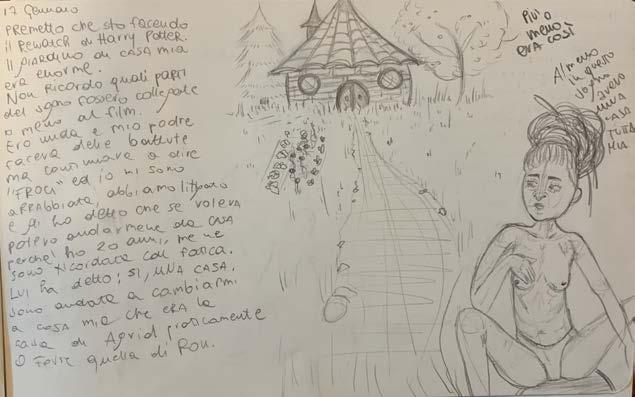 17 Gennaro
PREMETTO CHE STO FACENDO
il REWATCH di HARRY POTTER.
IL GIARDINO DI CASA MIA
ERA ENORME.
NON RICORDO QUALI PARTI
DEL SOGNO FOSSERO COLLEGATE
O MENO AL FILM.
ERO NUDA E MIO PADRE
FACEVA DELLE BATTUTE
MA CONTINUAVA A DIRE
"FROCI" ED IO MI SONO
ARRABBIATA, ABBIAMO LITIGATO
E gli HO DETTO CHE SE VOLEVA
POTEVO ANDARMENE DA CASA
PERCHÉ HO 20 ANNI, ME NE
SONO RICORDATA CON FATICA.
LUI HA DETTO: SI, UNA CASA.
SONO ANDATA A CAMBIARMI
A CASA MIA CHE ERA LA
CASA DI AGRID PRATICAMENTE
O FORSE QUELLA DI RON.
PIÙ O
MENO
ERA COSÌ
Almeno
in questo
sogno
avevo
UNA
CASA
TUTTA
MIA